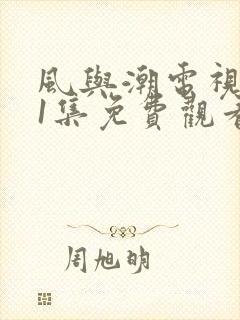 風與潮電視
1集免費觀看
周旭明